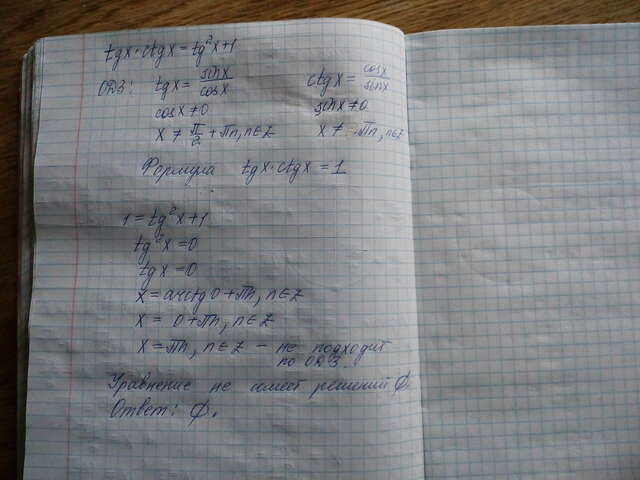 tgx·ctgx = tg²x+1
ОДЗ: tgx = sinx/cosx ctgx = cosx/sinx
cosx≠0 sinx≠0
x ≠ π/2 + πn, n∈Z x ≠ πn, n∈Z
Формула tgx·ctgx = 1
1 = tg²x+1
tg²x = 0
tgx = 0
x = arctg0+πn, n∈Z
x = 0+πn, n∈Z
x = πn, n∈Z – не подходит
по ОДЗ.
Уравнение не имеет решений ∅.
Ответ: ∅.